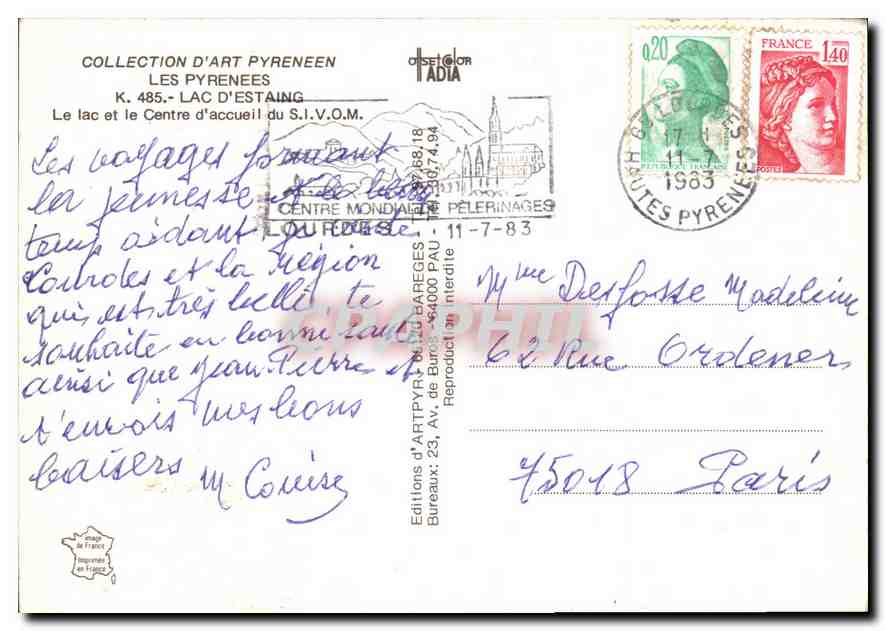 COLLECTION D'ART PYRENEEN
LES PYRENEES
K. 485.- LAC D'ESTAING
Le lac et le Centre d'accueil du S.I.V.O.M.
OFFSET COLOR
IADIA
0,20
FRANCE
1,40
POSTES
LOURDES
17 H
11-7
1983
HAUTES PYRENEES
CENTRE MONDIAL DE PÈLERINAGES
LOURDES 11-7-83
Les voyages formant
la jeunesse et le beau
temps aidant je visite
Lourdes et la région
qui est très belle te
souhaite en bonne santé
ainsi que Jean Pierre et
t'envois mes bons
baisers M Louise
Mme Desfosse Madeleine
62 Rue Ordener
75018 Paris
Editions d'ART PYR. - 65120 BAREGES - Tél. 97.68.18
Bureaux: 23, Av. de Buros - 64000 PAU - Tél. 30.74.94
Reproduction interdite
image
de France
Imprimée
en France